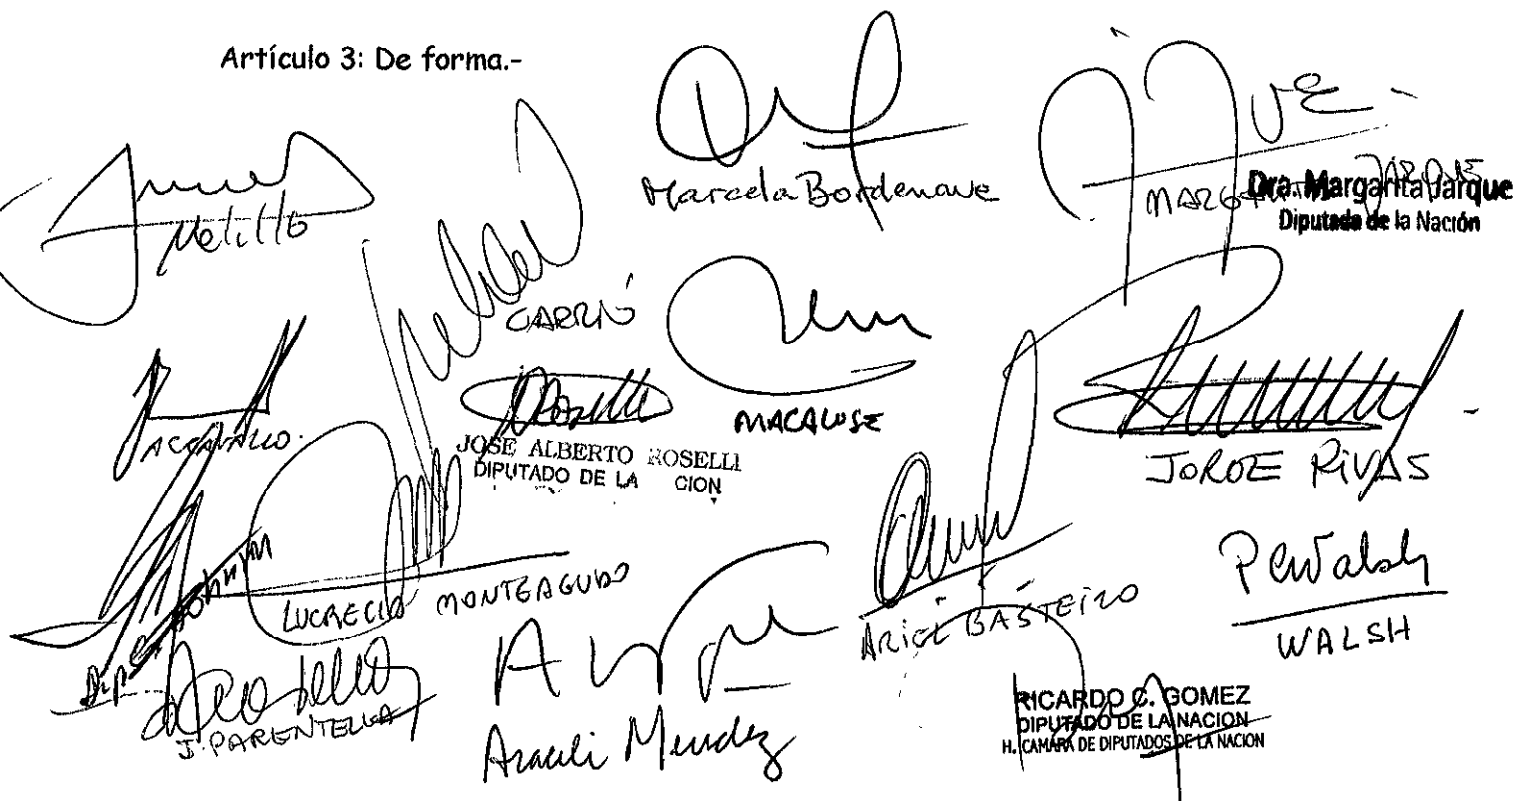 Artículo 3: De forma.-
Melillo
Marcela Bordenave
MARGARITA JARQUE
Dra. Margarita Jarque
Diputada de la Nación
CARRIÓ
MACALUSE
ACCAVALLO.
JOSE ALBERTO ROSELLI
DIPUTADO DE LA CION
JORGE RIVAS
LUCRECIA MONTEAGUDO
ARIEL BASTEIRO
PWalsh
WALSH
Dip.
J. PARENTELLA
Araceli Mendez
RICARDO C. GOMEZ
DIPUTADO DE LA NACION
H. CAMARA DE DIPUTADOS DE LA NACION